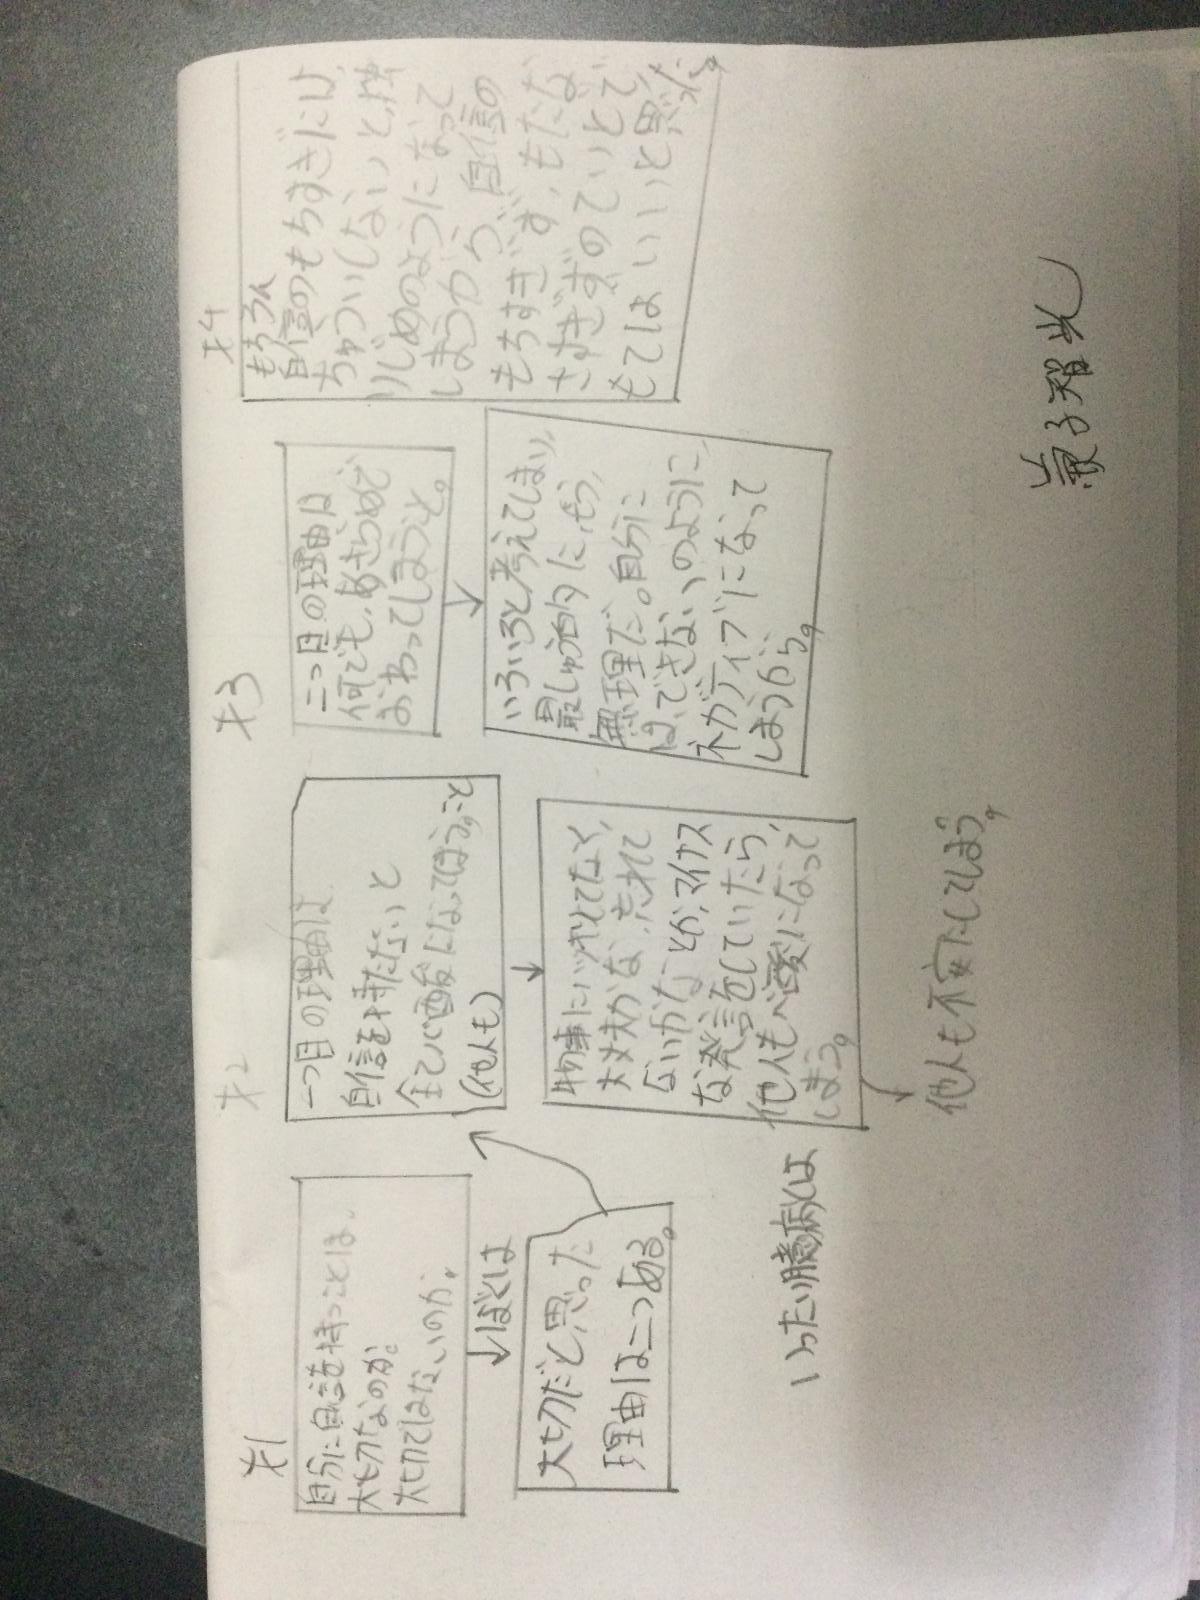 才1
自分に自信を持つことは、
大切なのか。
大切ではないのか。
↓ぼくは
大切だと思った
理由は二つある。
いったい臆病とは
才2
一つ目の理由は
自信を持たないと
全て心配になってしまうこと
(他人も)
↓
物事に
大丈夫かな、忘れて
ないかなとか、マイナス
な発言をしていたら、
他人も心配になって
しまう。
他人も不安にしてしまう。
才3
二つ目の理由は
何でも、あきらめで
おわってしまうと。
↓
いろいろと考えてしまい、
最しゅう的に、もう、
無理だ。自分に
は、できない、のように、
ネガティブになって
しまうから。
才4
もちろん
自信のもちすぎには、
ちゅういしないと、
いじめのようになって
しまうから、自信の
もちすぎず、もたな
さすぎずのていどで
もてばいいと思った。